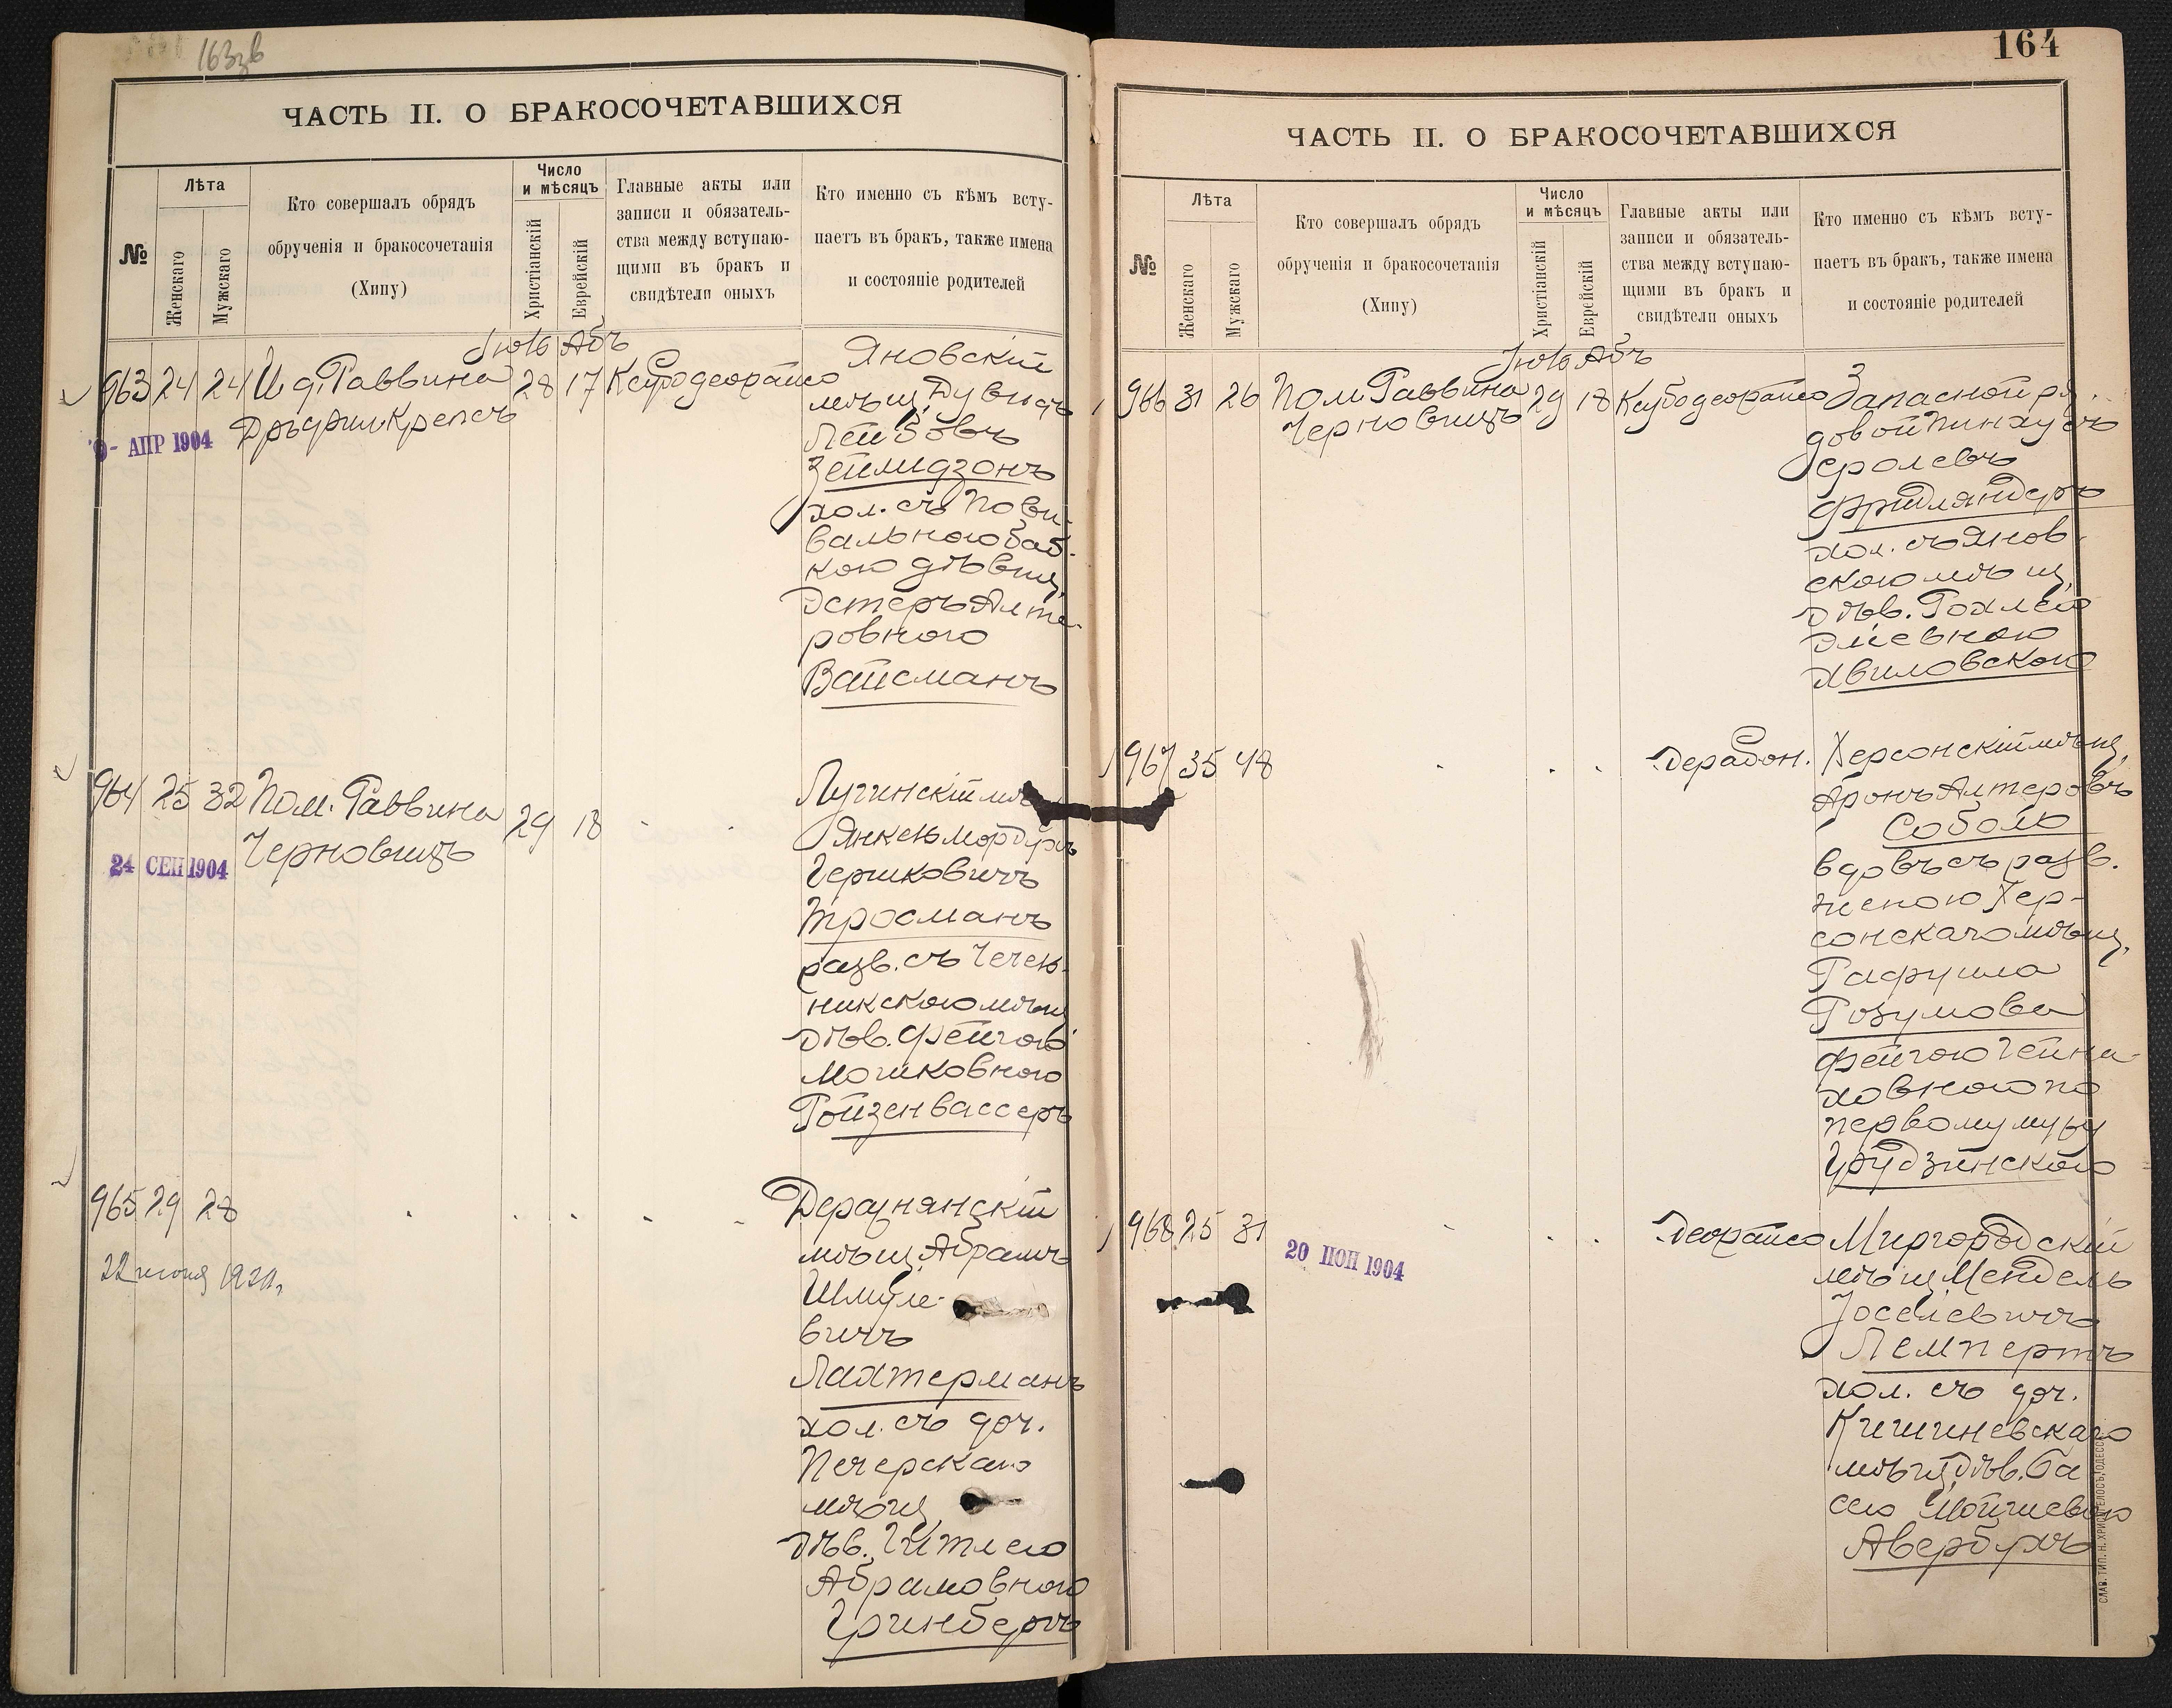 163зв
ЧАСТЬ II. О БРАКОСОЧЕТАВШИХСЯ
№
Лѣта
Женскаго
Мужскаго
Кто совершалъ обрядъ
обрученія и бракосочетанія
(Хипу)
Число
и мѣсяцъ
Христіанскій
Еврейскій
Главные акты или
записи и обязатель-
ства между вступаю-
щими въ бракъ и
свидѣтели оныхъ
Кто именно съ кѣмъ всту-
паетъ въ бракъ, также имена
и состояніе родителей
Іюль Абъ
963 24 24 И д. Раввина 28 17
9- АПР 1904
Яновскій
мѣщ.
Лейбовъ
Зейлидзонъ
хол. съ Пови-
вальною баб-
кою дѣвиц.
Эстеръ Алте-
ровною
Вайсманъ
964 25 32 Пом. Раввина 29 18
Черновицъ
24 СЕН 1904
Лугинскій мѣщ.
Янкель Мордухъ
Гершковичъ
Тросманъ
разв. съ Чечель-
никскою мѣщ.
дѣв. Фейгою
Мошковною
Ройзенвассеръ
965 29 28
Деражнянскій
мѣщ. Абрамъ
Шмуле-
вичъ
Лахтерманъ
хол. съ доч.
Печерскаго
мѣщ.
дѣв. Гитлею
Абрамовною
Гринбергъ
164
ЧАСТЬ II. О БРАКОСОЧЕТАВШИХСЯ
№
Лѣта
Женскаго
Мужскаго
Кто совершалъ обрядъ
обрученія и бракосочетанія
(Хипу)
Число
и мѣсяцъ
Христіанскій
Еврейскій
Главные акты или
записи и обязатель-
ства между вступаю-
щими въ бракъ и
свидѣтели оныхъ
Кто именно съ кѣмъ всту-
паетъ въ бракъ, также имена
и состояніе родителей
Іюль Абъ
966 31 26 Пом. Раввина 29 18
Черновицъ
Запасной ря-
довой Пинхусъ
Сролевъ
Фридляндеръ
хол. съ Янов-
скою мѣщ.
дѣв. Рохлею
Эліевною
Хвиловскою
967 35 48
Херсонскій мѣщ.
Аронъ Алтеровъ
Соболь
вдовъ съ разв.
женою Хер-
сонскаго мѣщ.
Рафуила
Розумова
Фейгою Гейни-
ховною по
первому мужу
Грудзинскою
968 25 31
20 ІЮН 1904
Миргородскій
мѣщ. Мендель
Іоселевичъ
Лемпертъ
хол. съ доч.
Кишиневскаго
мѣщ. дѣв. Ба-
сею
Авербухъ